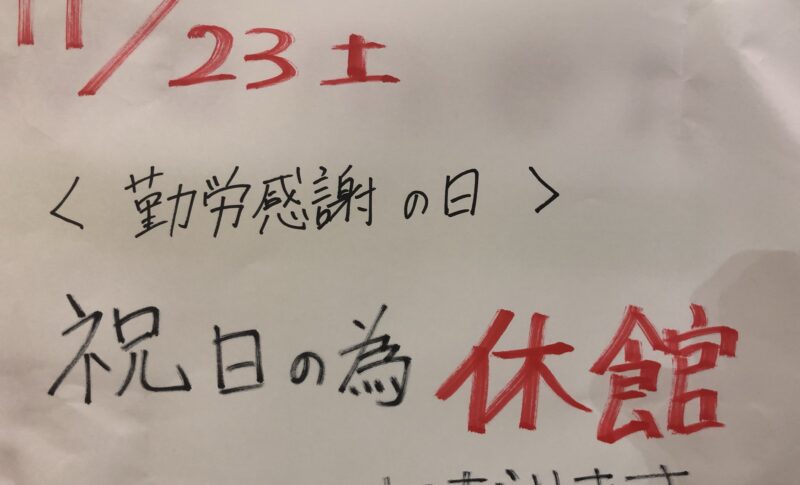 11/23土
〈勤労感謝の日〉
祝日の為休館
なります